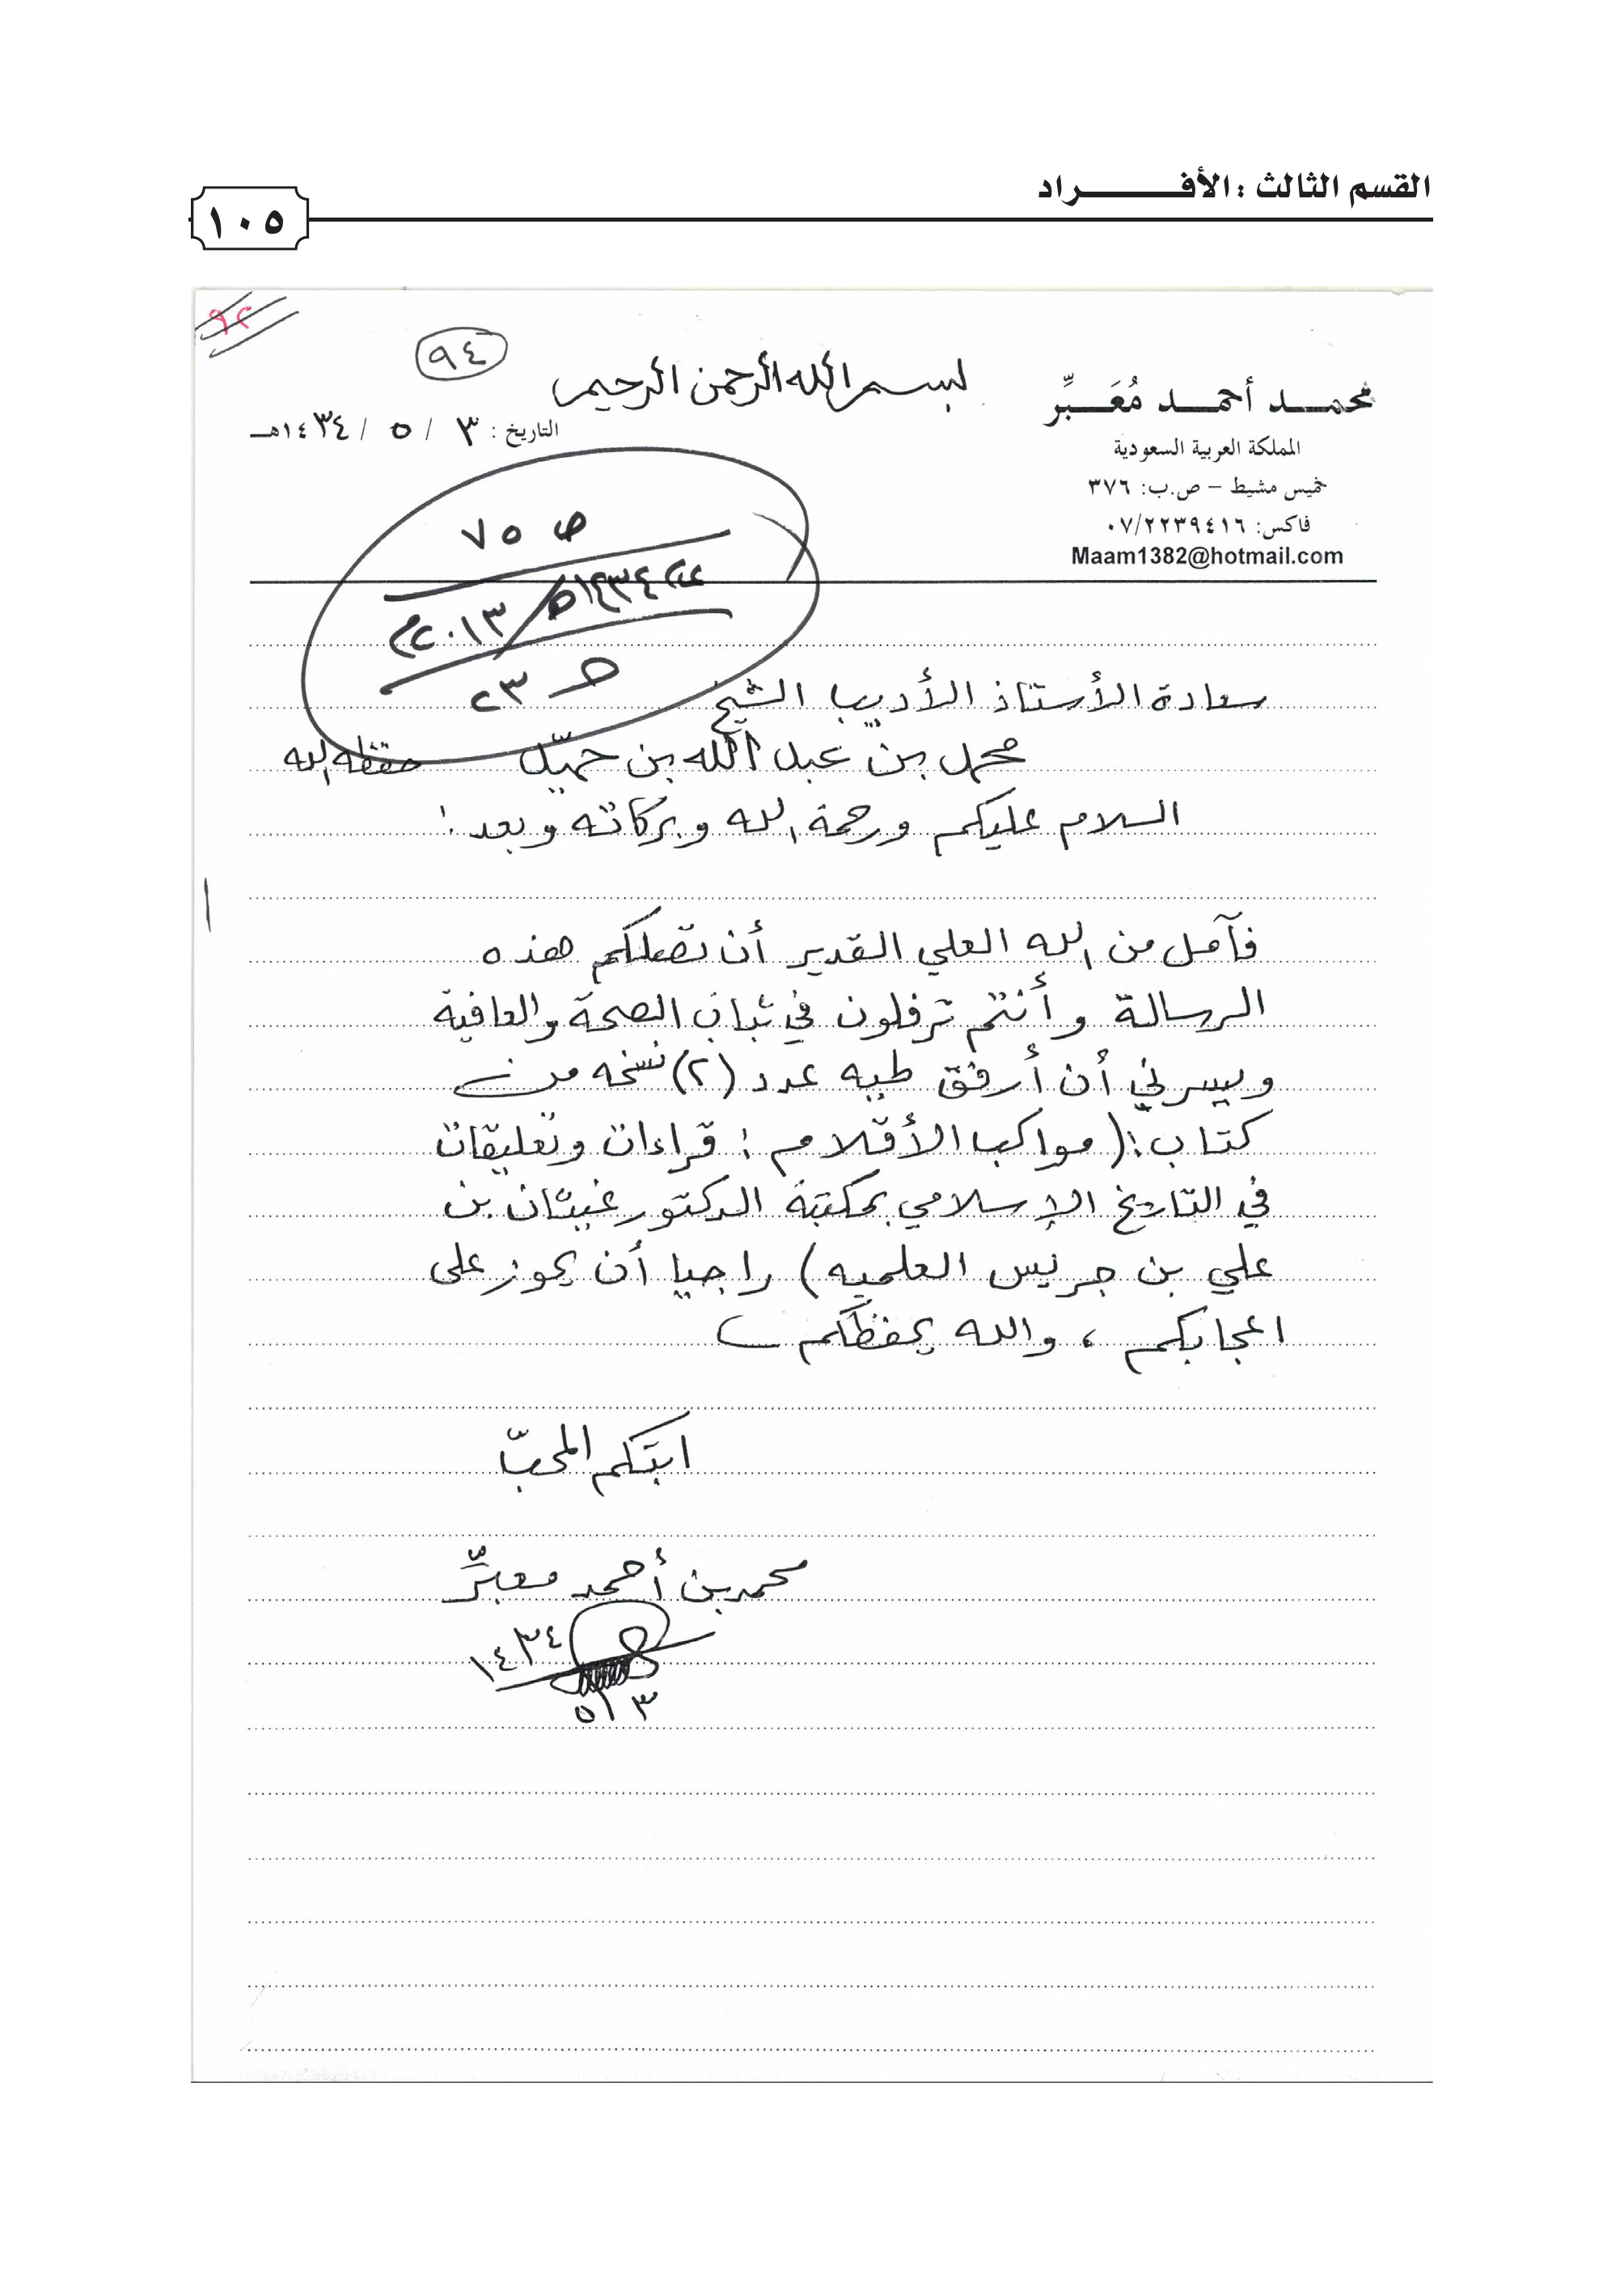 القسم الثالث : الأفـــــــراد
١٠٥
٩٤
بسم الله الرحمن الرحيم
محمـــد أحمـــد مُعَـــبِّر
المملكة العربية السعودية
خميس مشيط – ص.ب: ٣٧٦
فاكس: ٠٧/٢٢٣٩٤١٦
Maam1382@hotmail.com
التاريخ : ٣ / ٥ / ١٤٣٤هـ
ص ٧٥
١٤٣٤هـ / ٢٠١٣م
حـ ٢٣
سعادة الأستاذ الأديب الشيخ
محمد بن عبد الله بن حميّد حفظه الله
السلام عليكم ورحمة الله وبركاته وبعد :
فآمل من الله العلي القدير أن تصلكم هذه
الرسالة وأنتم ترفلون في ثياب الصحة والعافية
ويسرني أن أرفق طيه عدد (٢) نسخه من
كتاب : (مواكب الأقلام : قراءات وتعليقات
في التاريخ الإسلامي بمكتبة الدكتور غيثان بن
علي بن جريس العلميه) راجيا أن يحوز على
اعجابكم ، والله يحفظكم
ابنكم المحبّ
محمد بن أحمد معبِّر
١٤٣٤
٥/٣